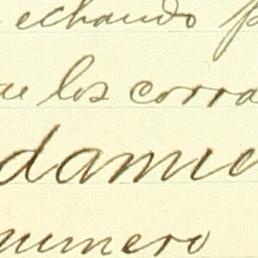 echando p
ue los corra
damie
numero